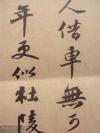 人借車無可
年更似杜陵